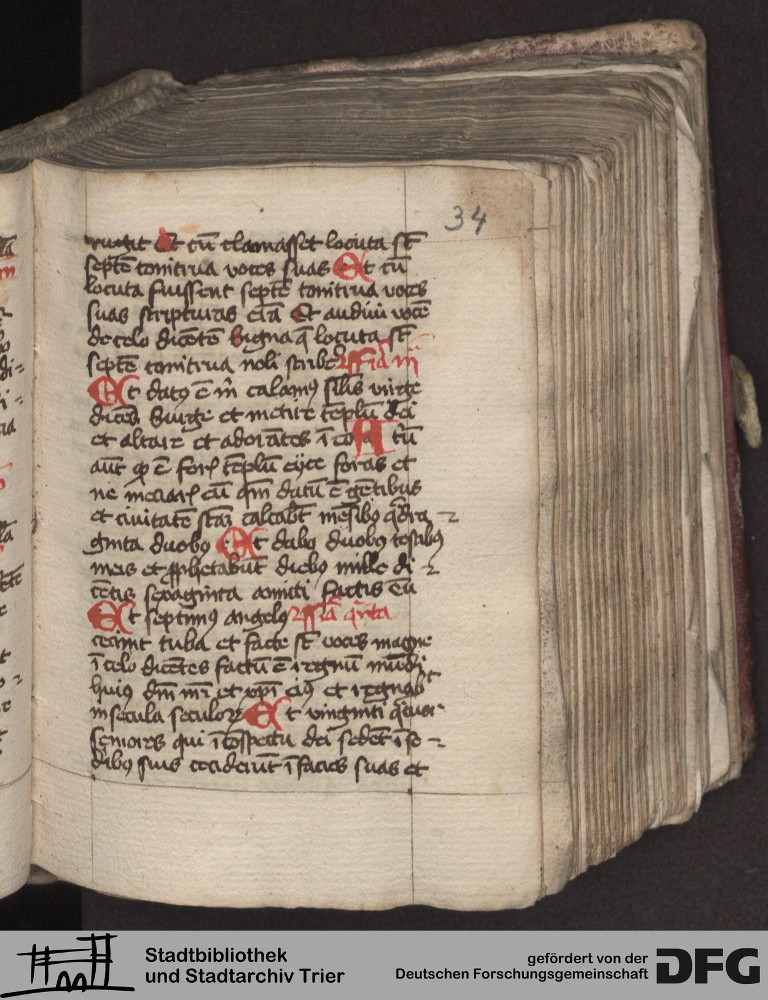 34
rugit Et cū clamasset locuta st̄
septē tonitrua voces suas Et cū
locuta fuissent septē tonitrua voces
suas scripturus erā Et audivi vocē
de celo dicētē Signa q̄ locuta st̄
septē tonitrua noli scribe
Et datꝰ ē m̄ calamꝰ sīlis virge
dicēs Surge et metire tēplū dei
et altare et adorātes ī eo A tū
aūt qd̄ ē forꝭ tēplū eijce foras et
ne meciarꝭ eū qm̄ datū ē gētibus
et civitatē scāȝ calcabt̄ mēsibꝰ q̄dra
ginta duobꝰ Et dabo duobꝰ testibꝰ
meis et ꝓphetabūt diebꝰ mille di
cētis sexaginta amicti saccis
Et septimꝰ angelꝰ
cecinit tuba et facte st̄ voces magne
ī celo dicētes factū ē regnū mūdi
huiꝰ dm̄ nr̄i et xp̄i eiꝰ et regnabt̄
in secula seculoꝝ Et viginti q̄tuor
seniores qui ī cōspectu dei sedēt ī se
dibꝰ suis ceciderūt ī facies suas et
Stadtbibliothek
und Stadtarchiv Trier
gefördert von der
Deutschen Forschungsgemeinschaft
DFG